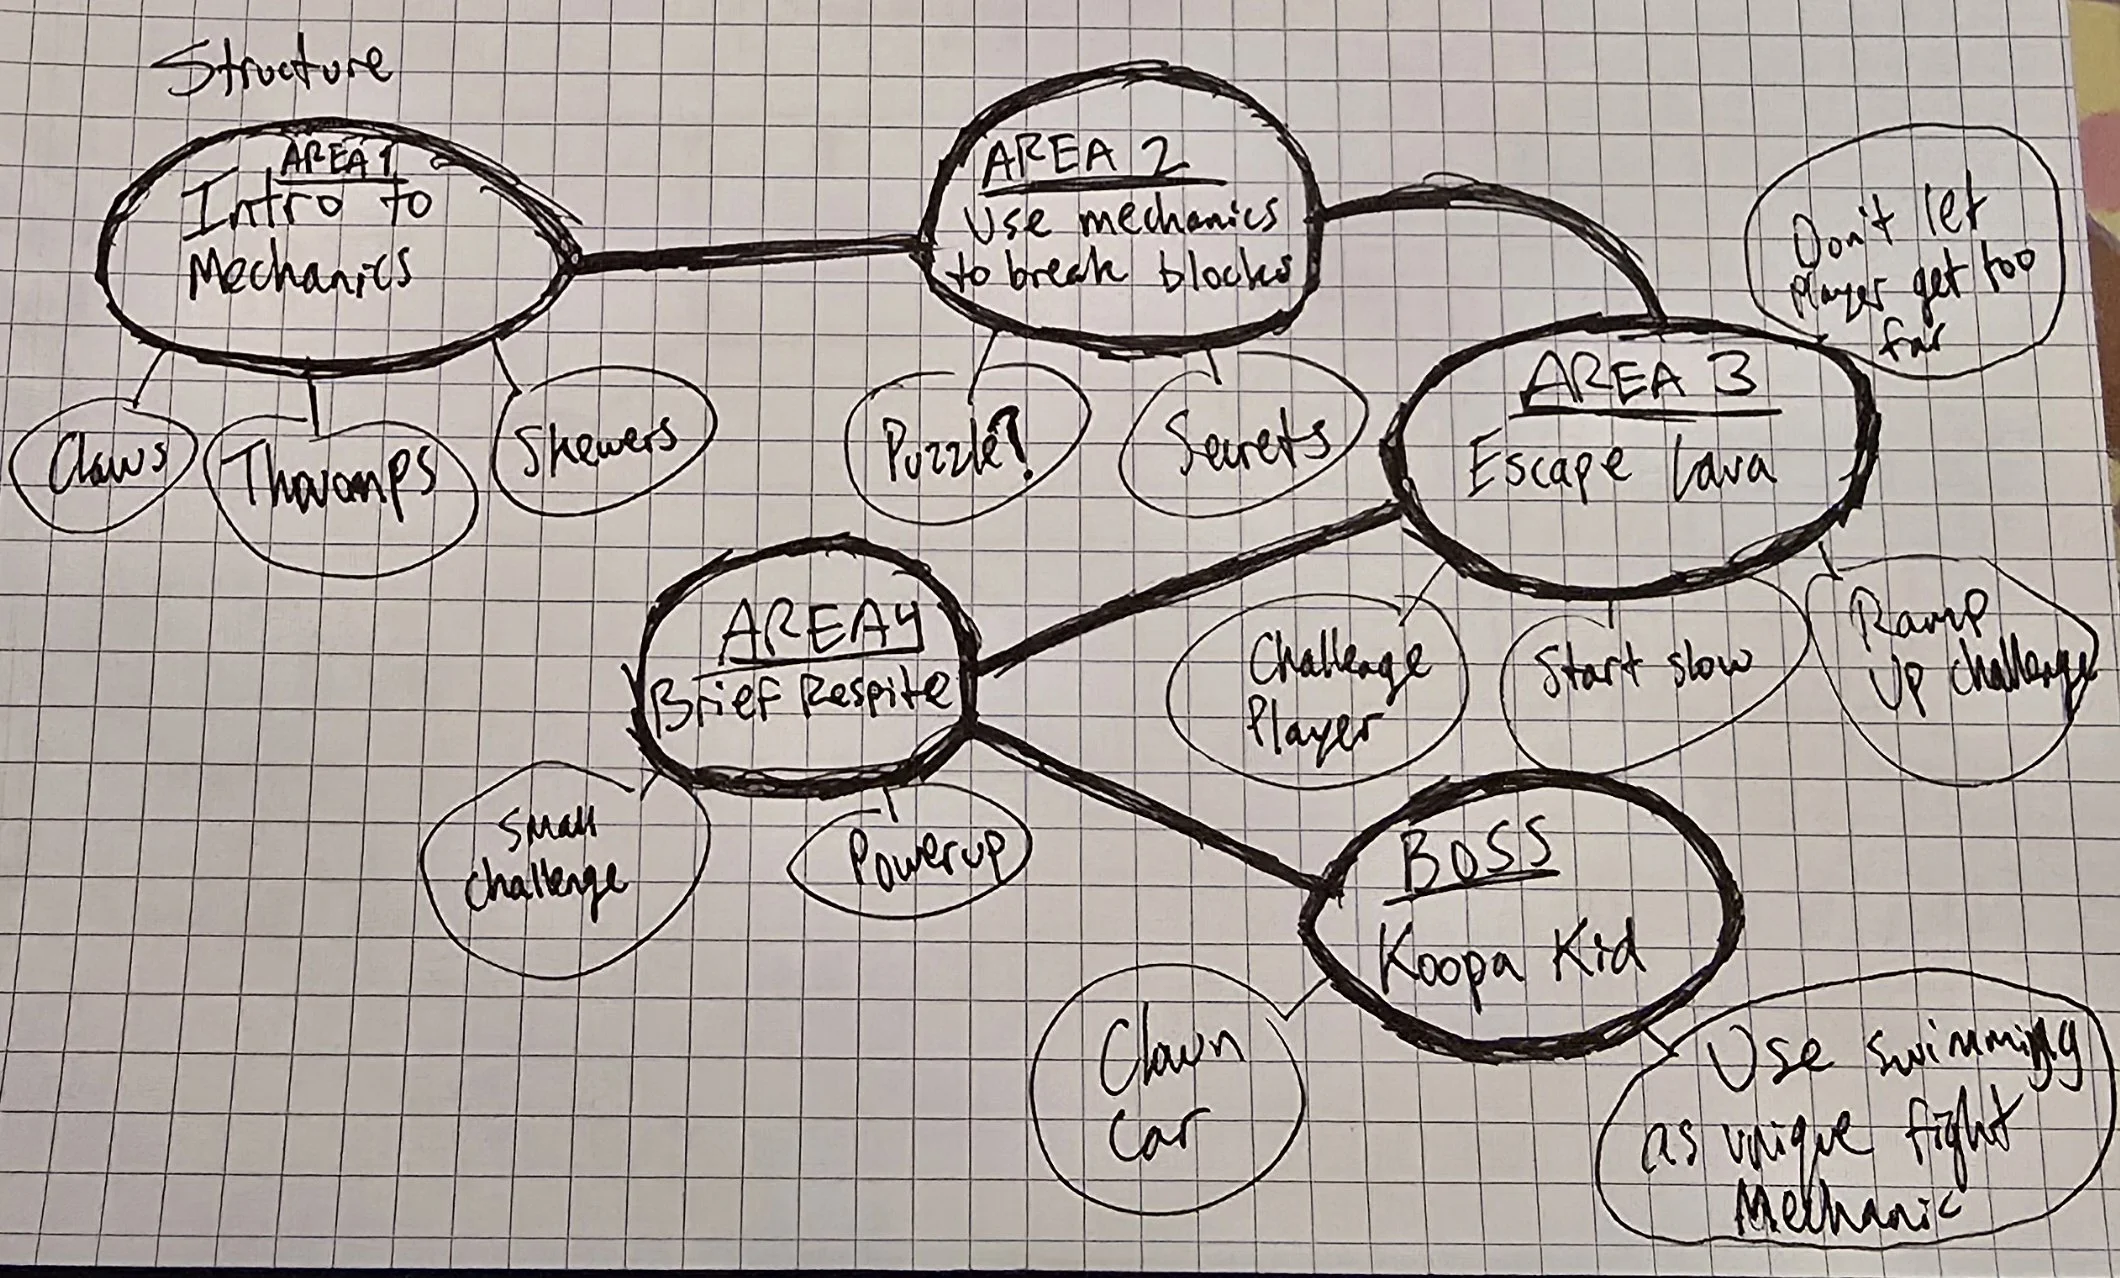 Structure
AREA 1
Intro to
Mechanics
Claws
Thwomps
Skewers
AREA 2
Use mechanics
to break blocks
Puzzle?
Secrets
AREA 3
Escape Lava
Don't let
Player get too
far
Challenge
Player
Start slow
Ramp
Up challenge
AREA 4
Brief Respite
Small
challenge
Powerup
BOSS
Koopa Kid
Clown
Car
Use swimming
as unique fight
Mechanic